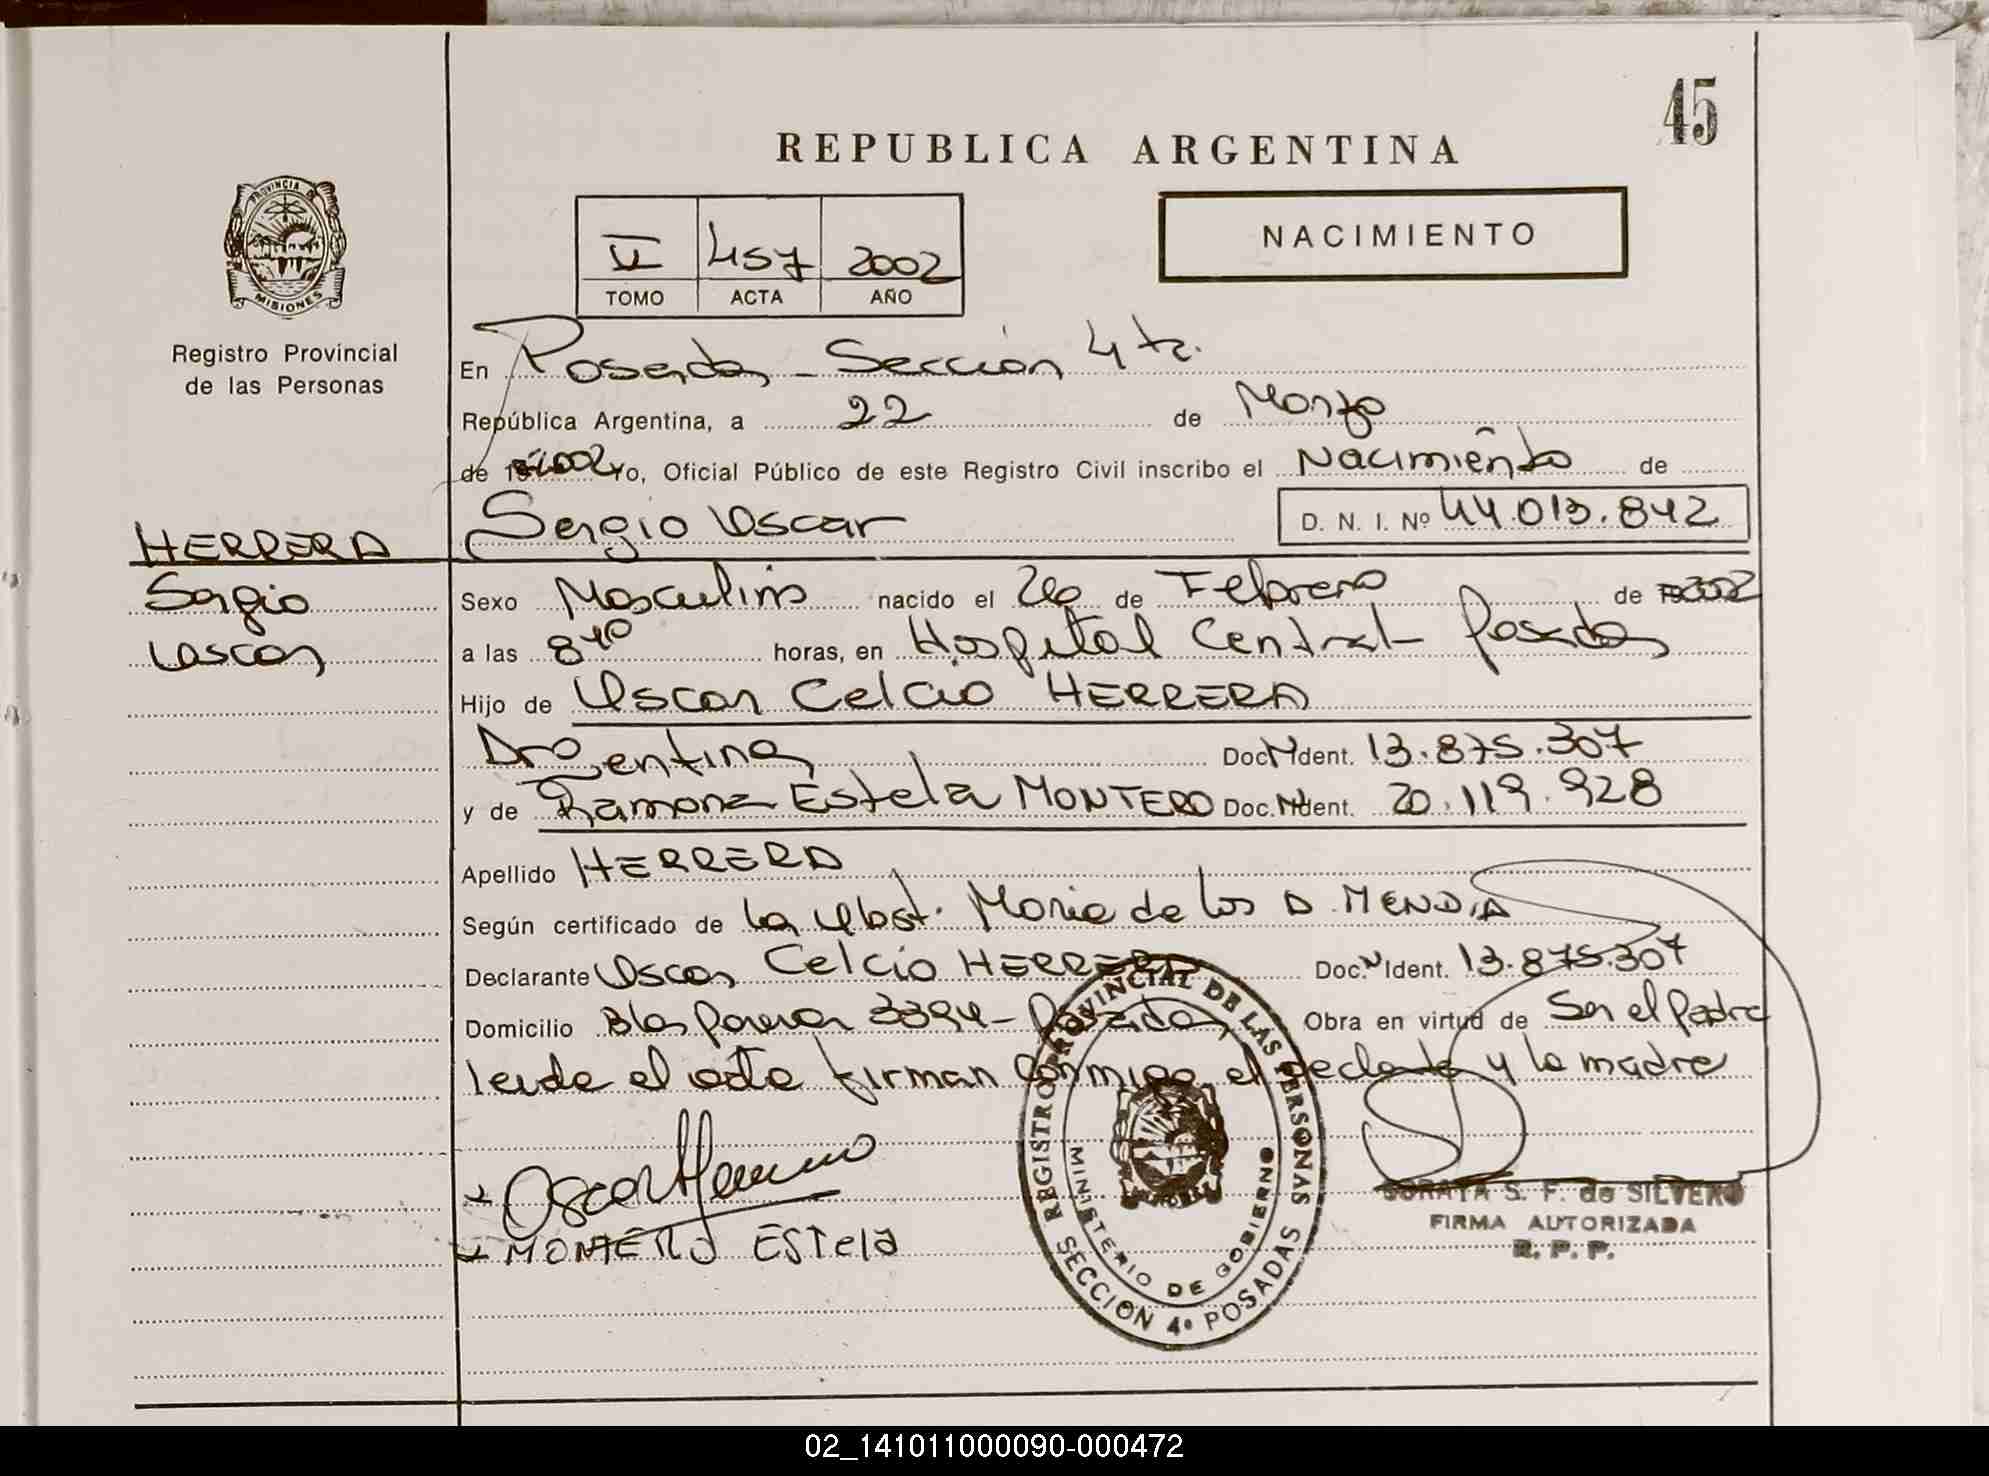 45
REPUBLICA ARGENTINA
PROVINCIA DE
MISIONES
Registro Provincial
de las Personas
II 457 2002
TOMO ACTA AÑO
NACIMIENTO
En Posadas - Sección 4ta.
República Argentina, a 22 de Marzo
de 2002 Yo, Oficial Público de este Registro Civil inscribo el Nacimiento de
HERRERA
Sergio
Oscar
Sergio Oscar D. N. I. Nº 44.013.842
Sexo Masculino nacido el 26 de Febrero de 2002
a las 8 40 horas, en Hospital Central - Posadas
Hijo de Oscar Celcio HERRERA
Argentina Doc. N Ident. 13.875.307
y de Ramona Estela MONTERO Doc. N Ident. 20.119.928
Apellido HERRERA
Según certificado de la Obst. Maria de los A. MENDIA
Declarante Oscar Celcio HERRERA Doc. N Ident. 13.875.307
Domicilio Blas Parera 3394 - Posadas Obra en virtud de Ser el padre
leida el acta firman conmigo el y la madre
Oscar Herrera
MONTERO EStela
REGISTRO PROVINCIAL DE LAS PERSONAS
MINISTERIO DE GOBIERNO
SECCION 4ª POSADAS
SORAYA S. F. de SILVERO
FIRMA AUTORIZADA
R. P. P.
02_141011000090-000472